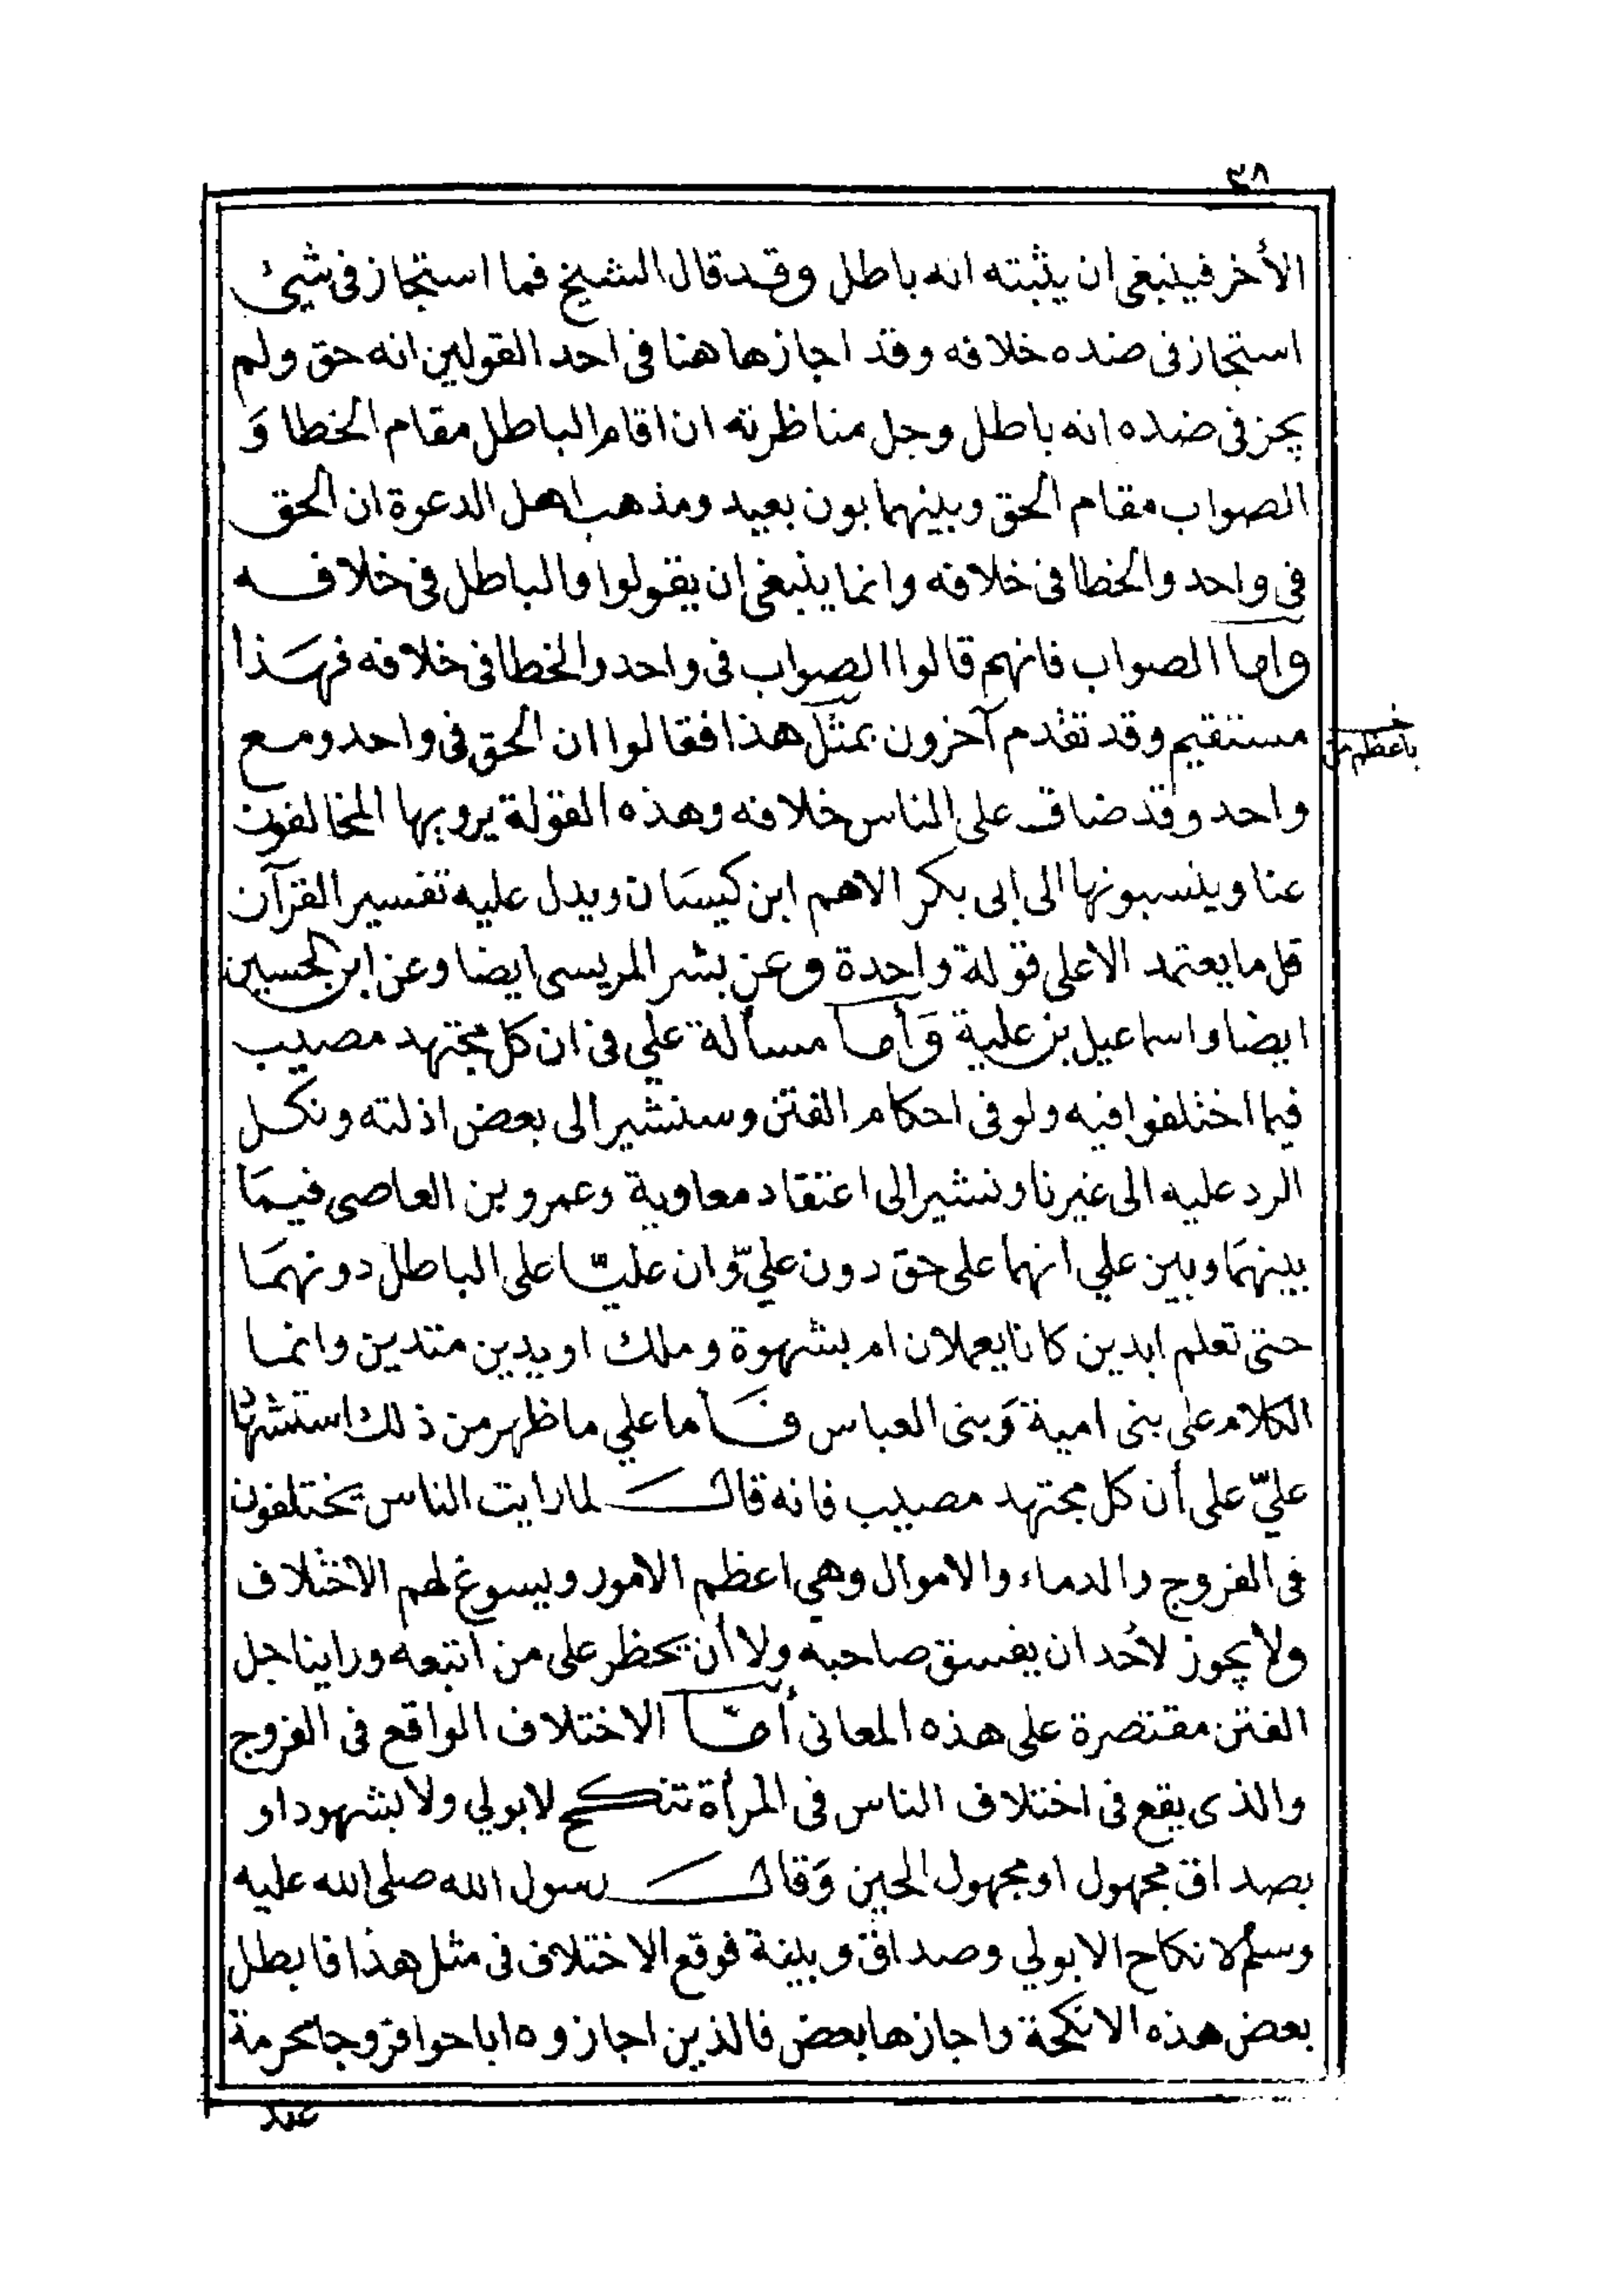 ٣٨
الأخر فينبغي ان يثبته انه باطل وقد قال الشيخ فما استجاز في شيئ
استجاز في ضده خلافه وقد اجازها هنا في احد القولين انه حق ولم
يجز في ضده انه باطل وجل مناظرته ان اقام الباطل مقام الخطا وَ
الصواب مقام الحق وبينهما بون بعيد ومذهب اهل الدعوة ان الحق
في واحد والخطا في خلافه وانما ينبغي ان يقولوا والباطل في خلافه
واما الصواب فانهم قالوا الصواب في واحد والخطا في خلافه فهَذا
مستقيم وقد تقدم آخرون بمثل هذا فقالوا ان الحق في واحد ومع
باعظم من
واحد وقد ضاق على الناس خلافه وهذه القولة يرويها المخالفون
عنا وينسبونها الى ابى بكر الاهم ابن كيسَان ويدل عليه تفسير القرآن
قل ما يعتمد الا على قولة واحدة وعن بشر المريسى ايضا وعن ابن الحسين
ايضا واسماعيل بن علية وَأما مسألة علي في ان كل مجتهد مصيب
فيما اختلفوا فيه ولو في احكام الفتن وسنشير الى بعض اذلته ونكل
الرد عليه الى غيرنا ونشير الى اعتقاد معاوية وعمرو بن العاصى فيمَا
بينهمَا وبين علي انهما على حق دون عليّ وان عليّا على الباطل دونهمَا
حتى تعلم ابدين كانا يعملان ام بشهوة وملك او بدين متدين وانما
الكلام على بنى امية وَبنى العباس فَأما علي ما ظهر من ذلك استشهاد
عليّ على أن كل مجتهد مصيب فانه قال لما رايت الناس يختلفون
في الفروج والدماء والاموال وهي اعظم الامور ويسوغ لهم الاختلاف
ولا يجوز لأحد ان يفسق صاحبه ولا أن يحظر على من اتبعه وراينا جل
الفتن مقتصرة على هذه المعانى أمّا الاختلاف الواقع في الفروج
والذى يقع في اختلاف الناس في المرأة تنكح لا بولي ولا بشهود او
بصداق مجهول او مجهول الحين وَقال رسول الله صلى الله عليه
وسلم لا نكاح الا بولي وصداق وبينة فوقع الاختلاف في مثل هذا فابطل
بعض هذه الانكحة واجازها بعض فالذين اجازوه اباحوا فروجا محرمة
عند